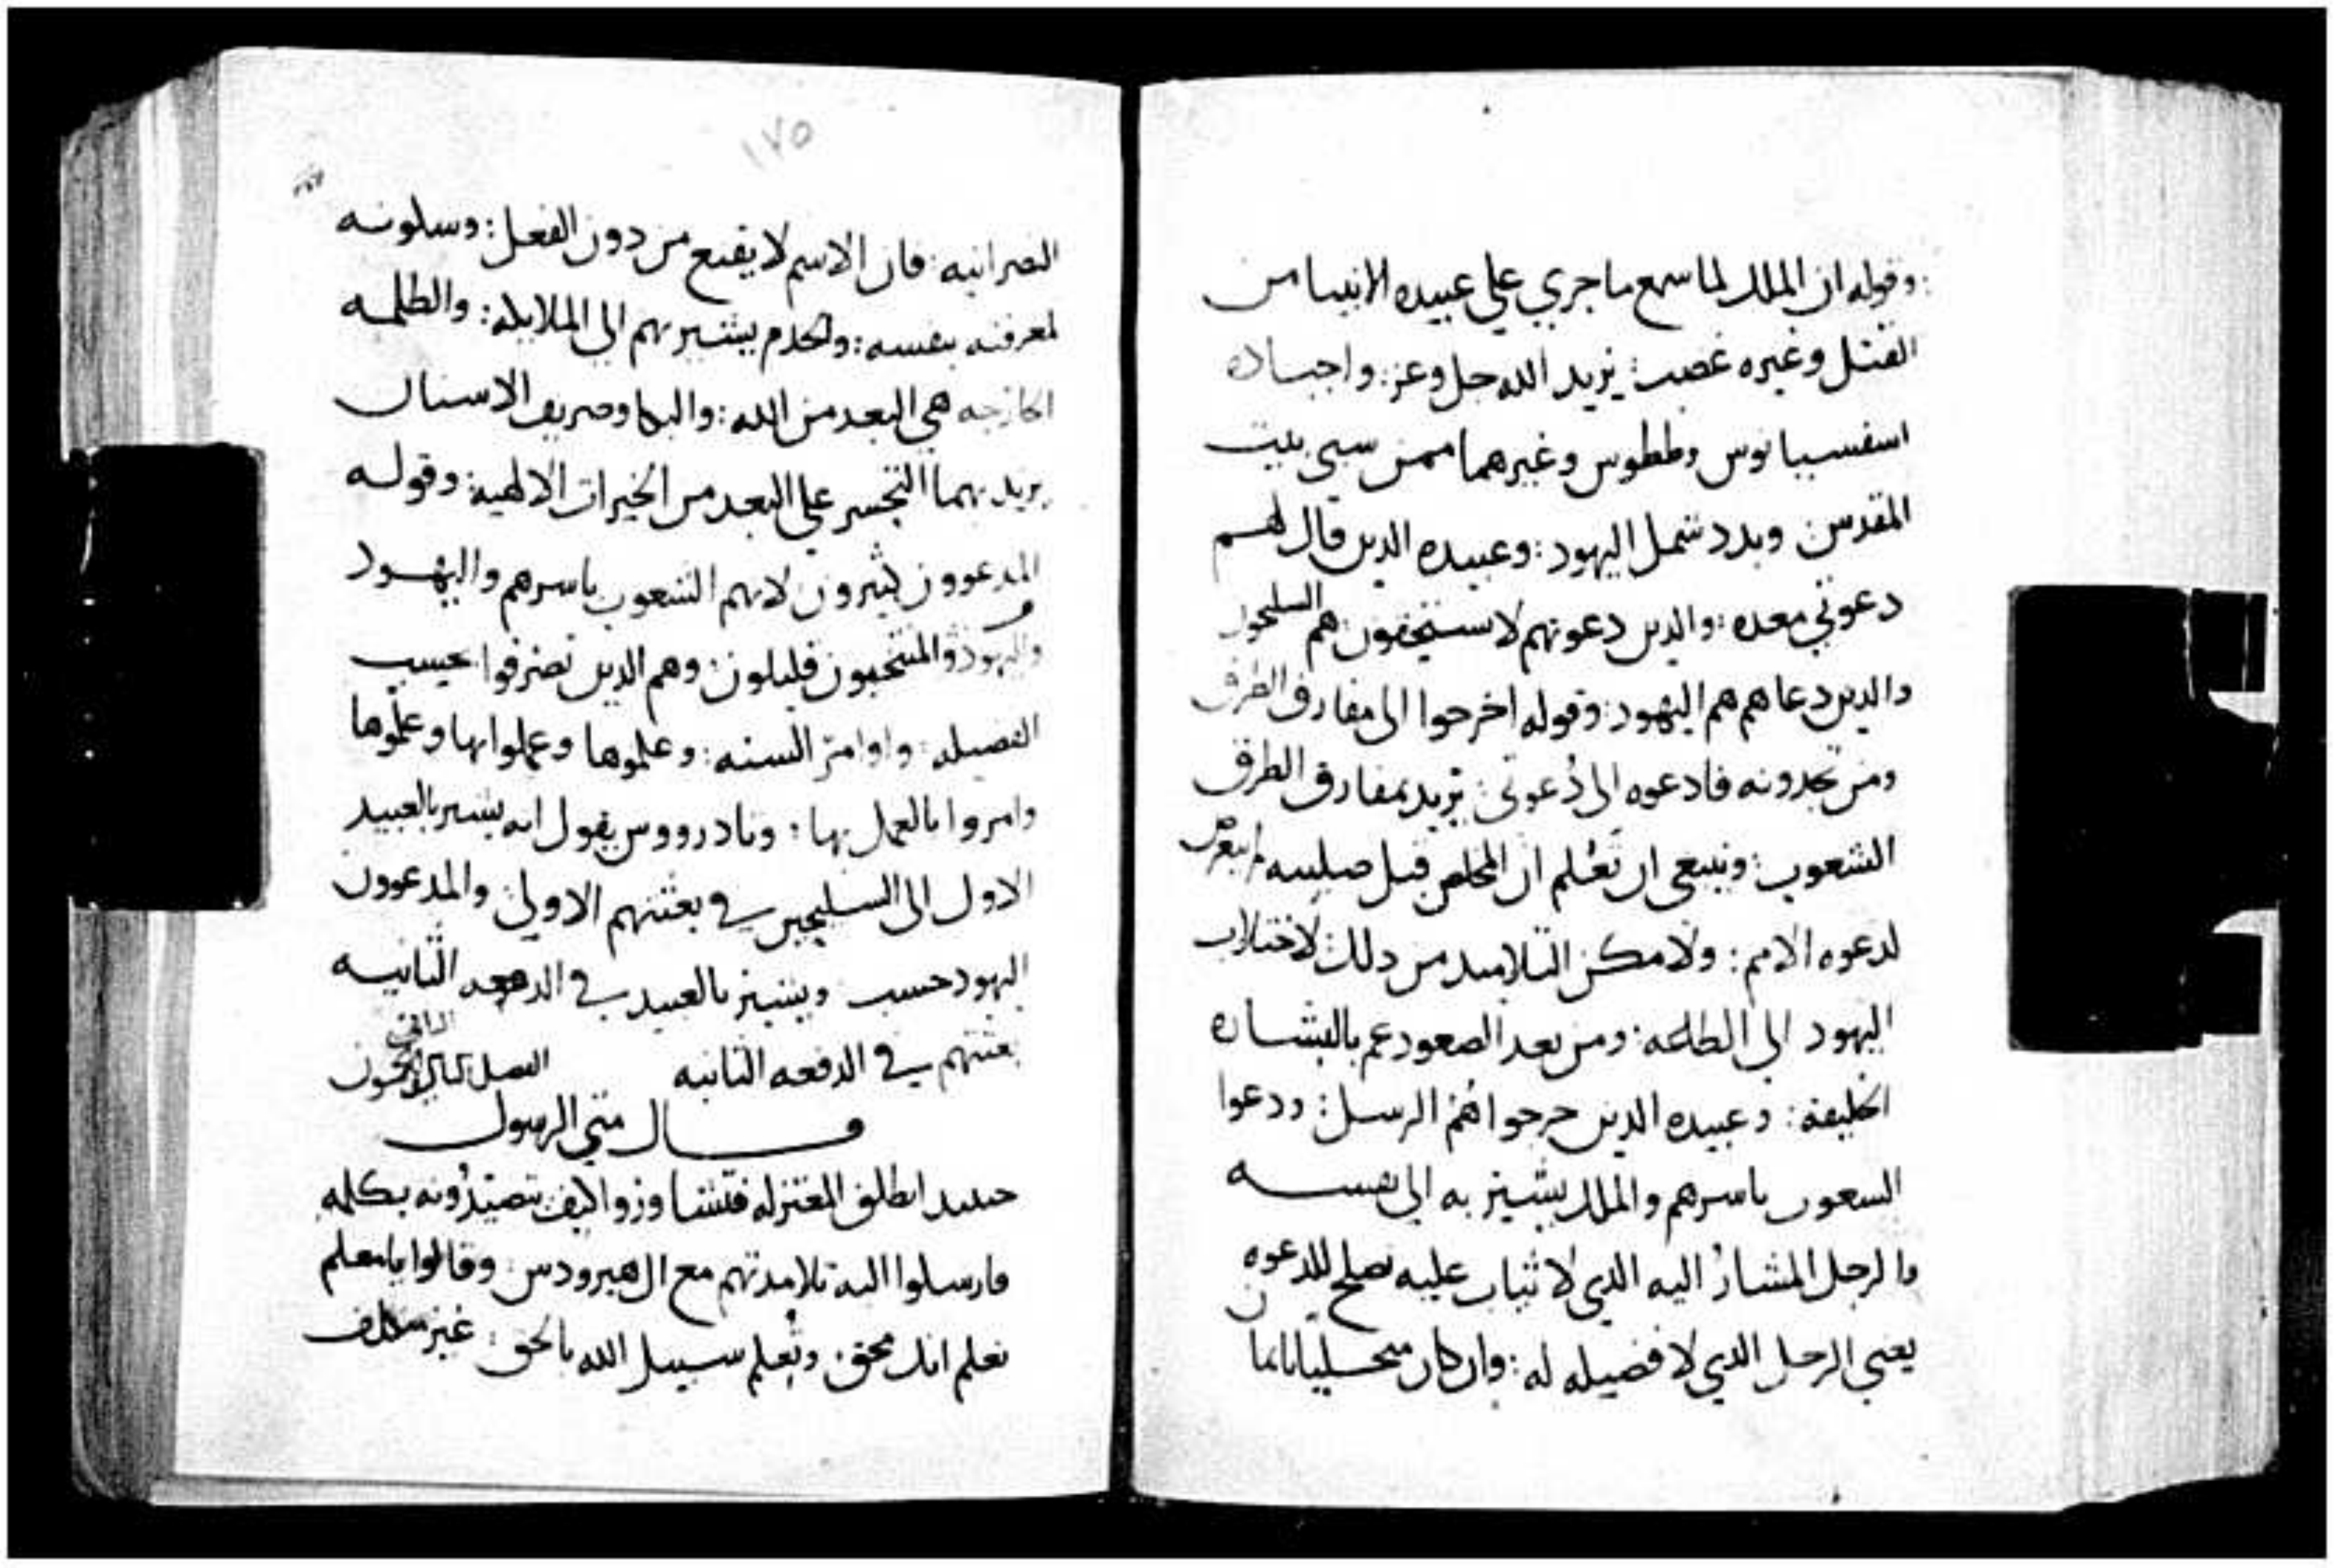 : وقوله ان الملك لما سمع ما جري علي عبيده الانبيا من
القتل وغيره غضب : يريد الله جل وعز : واجناده
اسفسيانوس وططوس وغيرهما ممن سبي بيت
المقدس وبدد شمل اليهود : وعبيده الدين قال لهم
دعوتي معده : والدين دعوتهم لا يستحقون : هم السليحون
والدين دعاهم هم اليهود : وقوله اخرجوا الي مفارق الطرق
ومن تجدونه فادعوه الي دعوتي : يريد بمفارق الطرق
الشعوب : وينبغي ان تعلم ان المخلص قبل صلبه لم يتعرض
لدعوه الامم : ولا مكن التلاميد من دلك لاختلاب
اليهود الي الطاعه : ومن بعد الصعود عم بالبشاره
الخليقه : وعبيده الدين خرجوا هم الرسل : ودعوا
الشعوب باسرهم والملك يشير به الي نفسه
والرجل المشار اليه الدي لا ثياب عليه تصلح للدعوه
يعني الرجل الدي لا فضيله له : وان كان متحليا بايمان
١٧٥
النصرانيه : فان الاسم لا يقنع من دون الفعل : وسكوته
لمعرفته بنفسه : والخدم يشير بهم الي الملايكه : والظلمه
الخارجه هي البعد من الله : والبكا وصريف الاسنان
يريد بهما التحسر علي البعد من الخيرات الالهيه : وقوله
المدعوون كثيرون لانهم الشعوب باسرهم واليهود
واليهود والمنتخبون قليلون : وهم الدين تصرفوا بحسب
الفضيله : واوامر السنه : وعلموها وعملوا بها وعلموها
وامروا بالعمل بها : وثادرووس يقول انه يشير بالعبيد
الاول الي السليحين في بعثتهم الاولي : والمدعوون
اليهود حسب ويشير بالعبيد في الدفعه الثانيه
بعثتهم في الدفعه الثانيه الفصل
قال متي الرسول
حينيد انطلق المعتزله فتشاوزوا كيف يتصيدونه بكلمه
فارسلوا اليه تلامدتهم مع ال هيرودس : وقالوا يا معلم
نعلم انك محق : وتعلم سبيل الله بالحق : غير مكلف